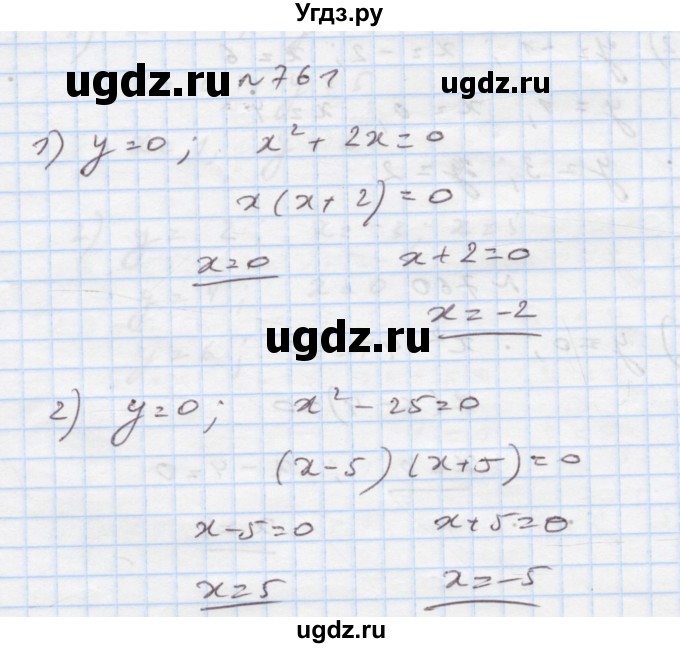 Угдз.ру
ugdz.ru №761 ugdz.ru
1) y=0; x²+2x=0
x(x+2)=0
x=0 x+2=0
ugdz.ru x=-2
2) y=0; x²-25=0
(x-5)(x+5)=0
x-5=0 x+5=0
x=5 x=-5
ugdz.ru